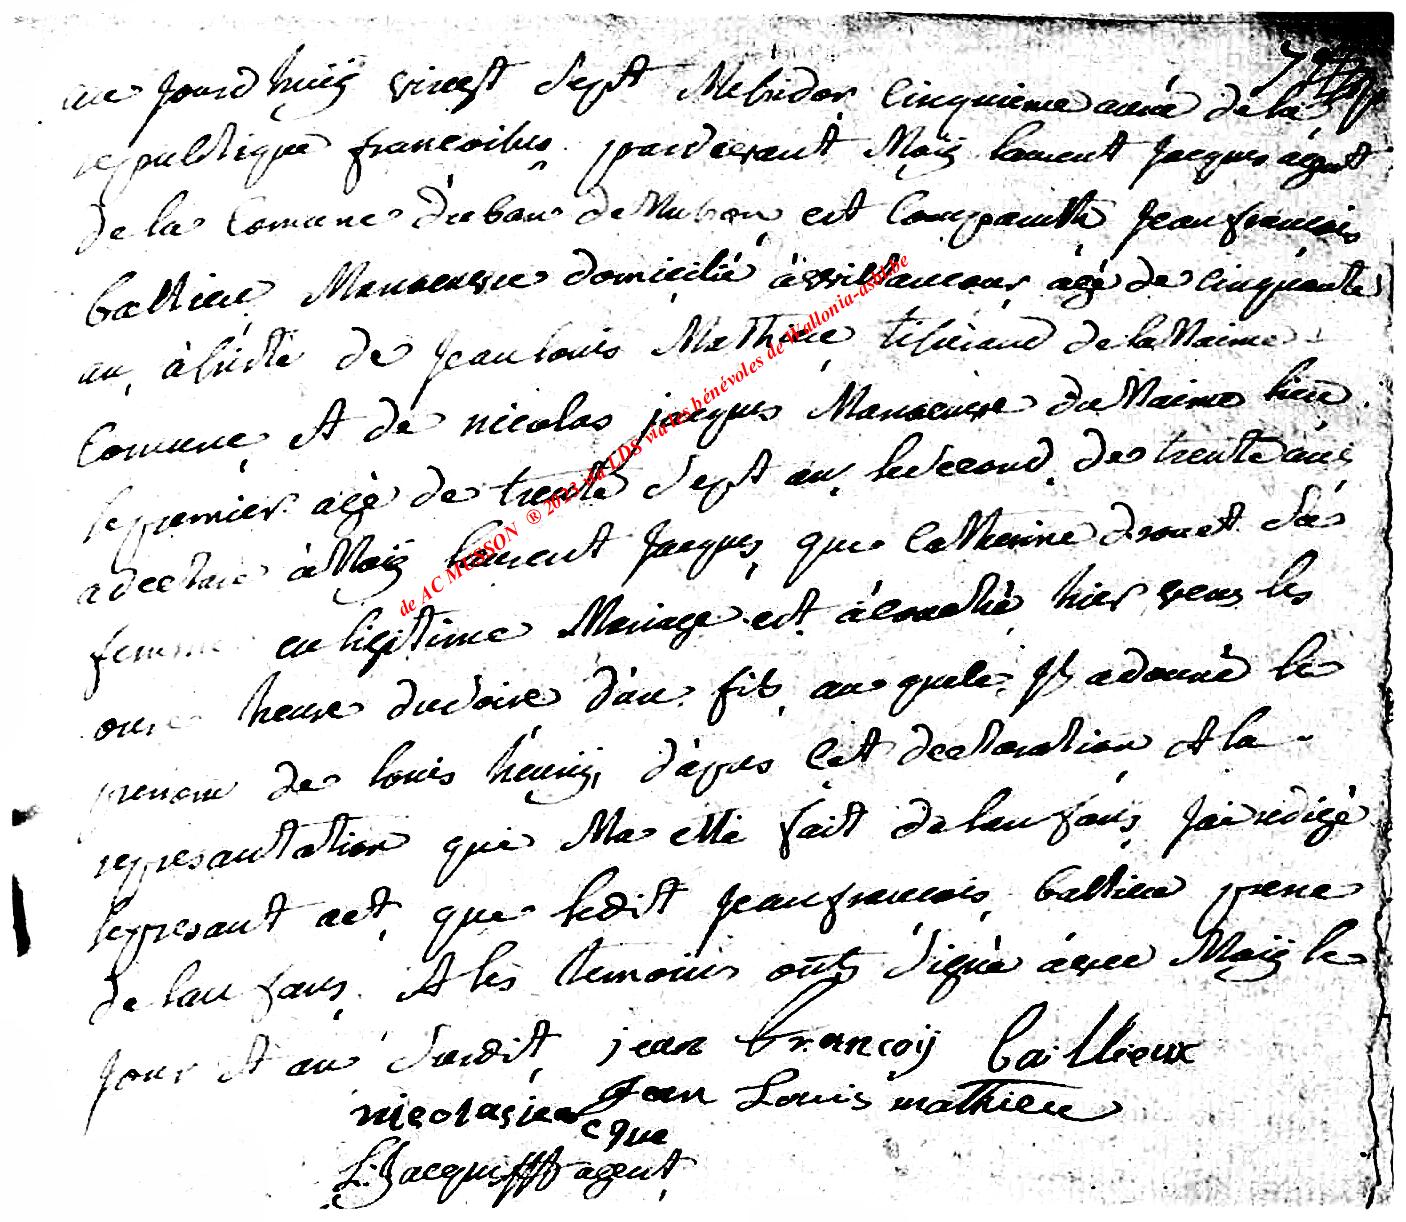 au jourd huÿ vinest sept Mesidor cinquieme anné de la
republique francoise pardevant Moÿ laurent Jacques agent
de la Comune du ban de Musson est Comparuth Jean francois
ballieu Manoeuvre domicilié à willancour agé de cinquante
an, à sisté de Jean louis Mathieu tiserand de la Maime
Comune, et de nicolas jacques Manoeuvre du Maime lieu
le premier agé de trente sept an, le second de trente ans
a declare à Moÿ laurent Jacques, que Catherine drouet sa
femme en ligitime Mariage est acouché hier vers les
onze heure du soire d'un fils, au quele Jl a donné le
prenom de louis henriÿ, d'apres cet declaration et la
represantation que Ma etté fait de lau fans, J'ai redigé
le presant act, que ledit Jean francois ballieu pere
de lau fans, et les temoins onts signé avec Moÿ le
Jour et an susdit, jean francoÿ baillieux
nicolas jacque Jean Louis mathieu
L: Jacques agent
de AC MUSSON ® 2023 via LDS via les bénévoles de Wallonia-asbl.be